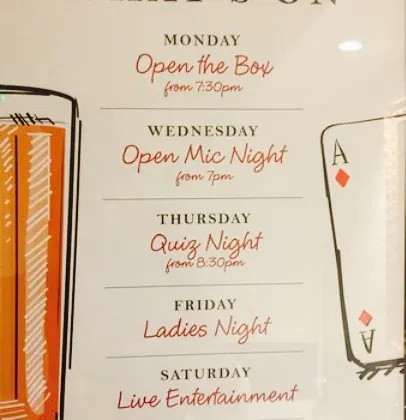 WHAT'S ON
MONDAY
Open the Box
from 7:30pm
WEDNESDAY
Open Mic Night
from 7pm
THURSDAY
Quiz Night
from 8:30pm
FRIDAY
Ladies Night
SATURDAY
Live Entertainment
A
A